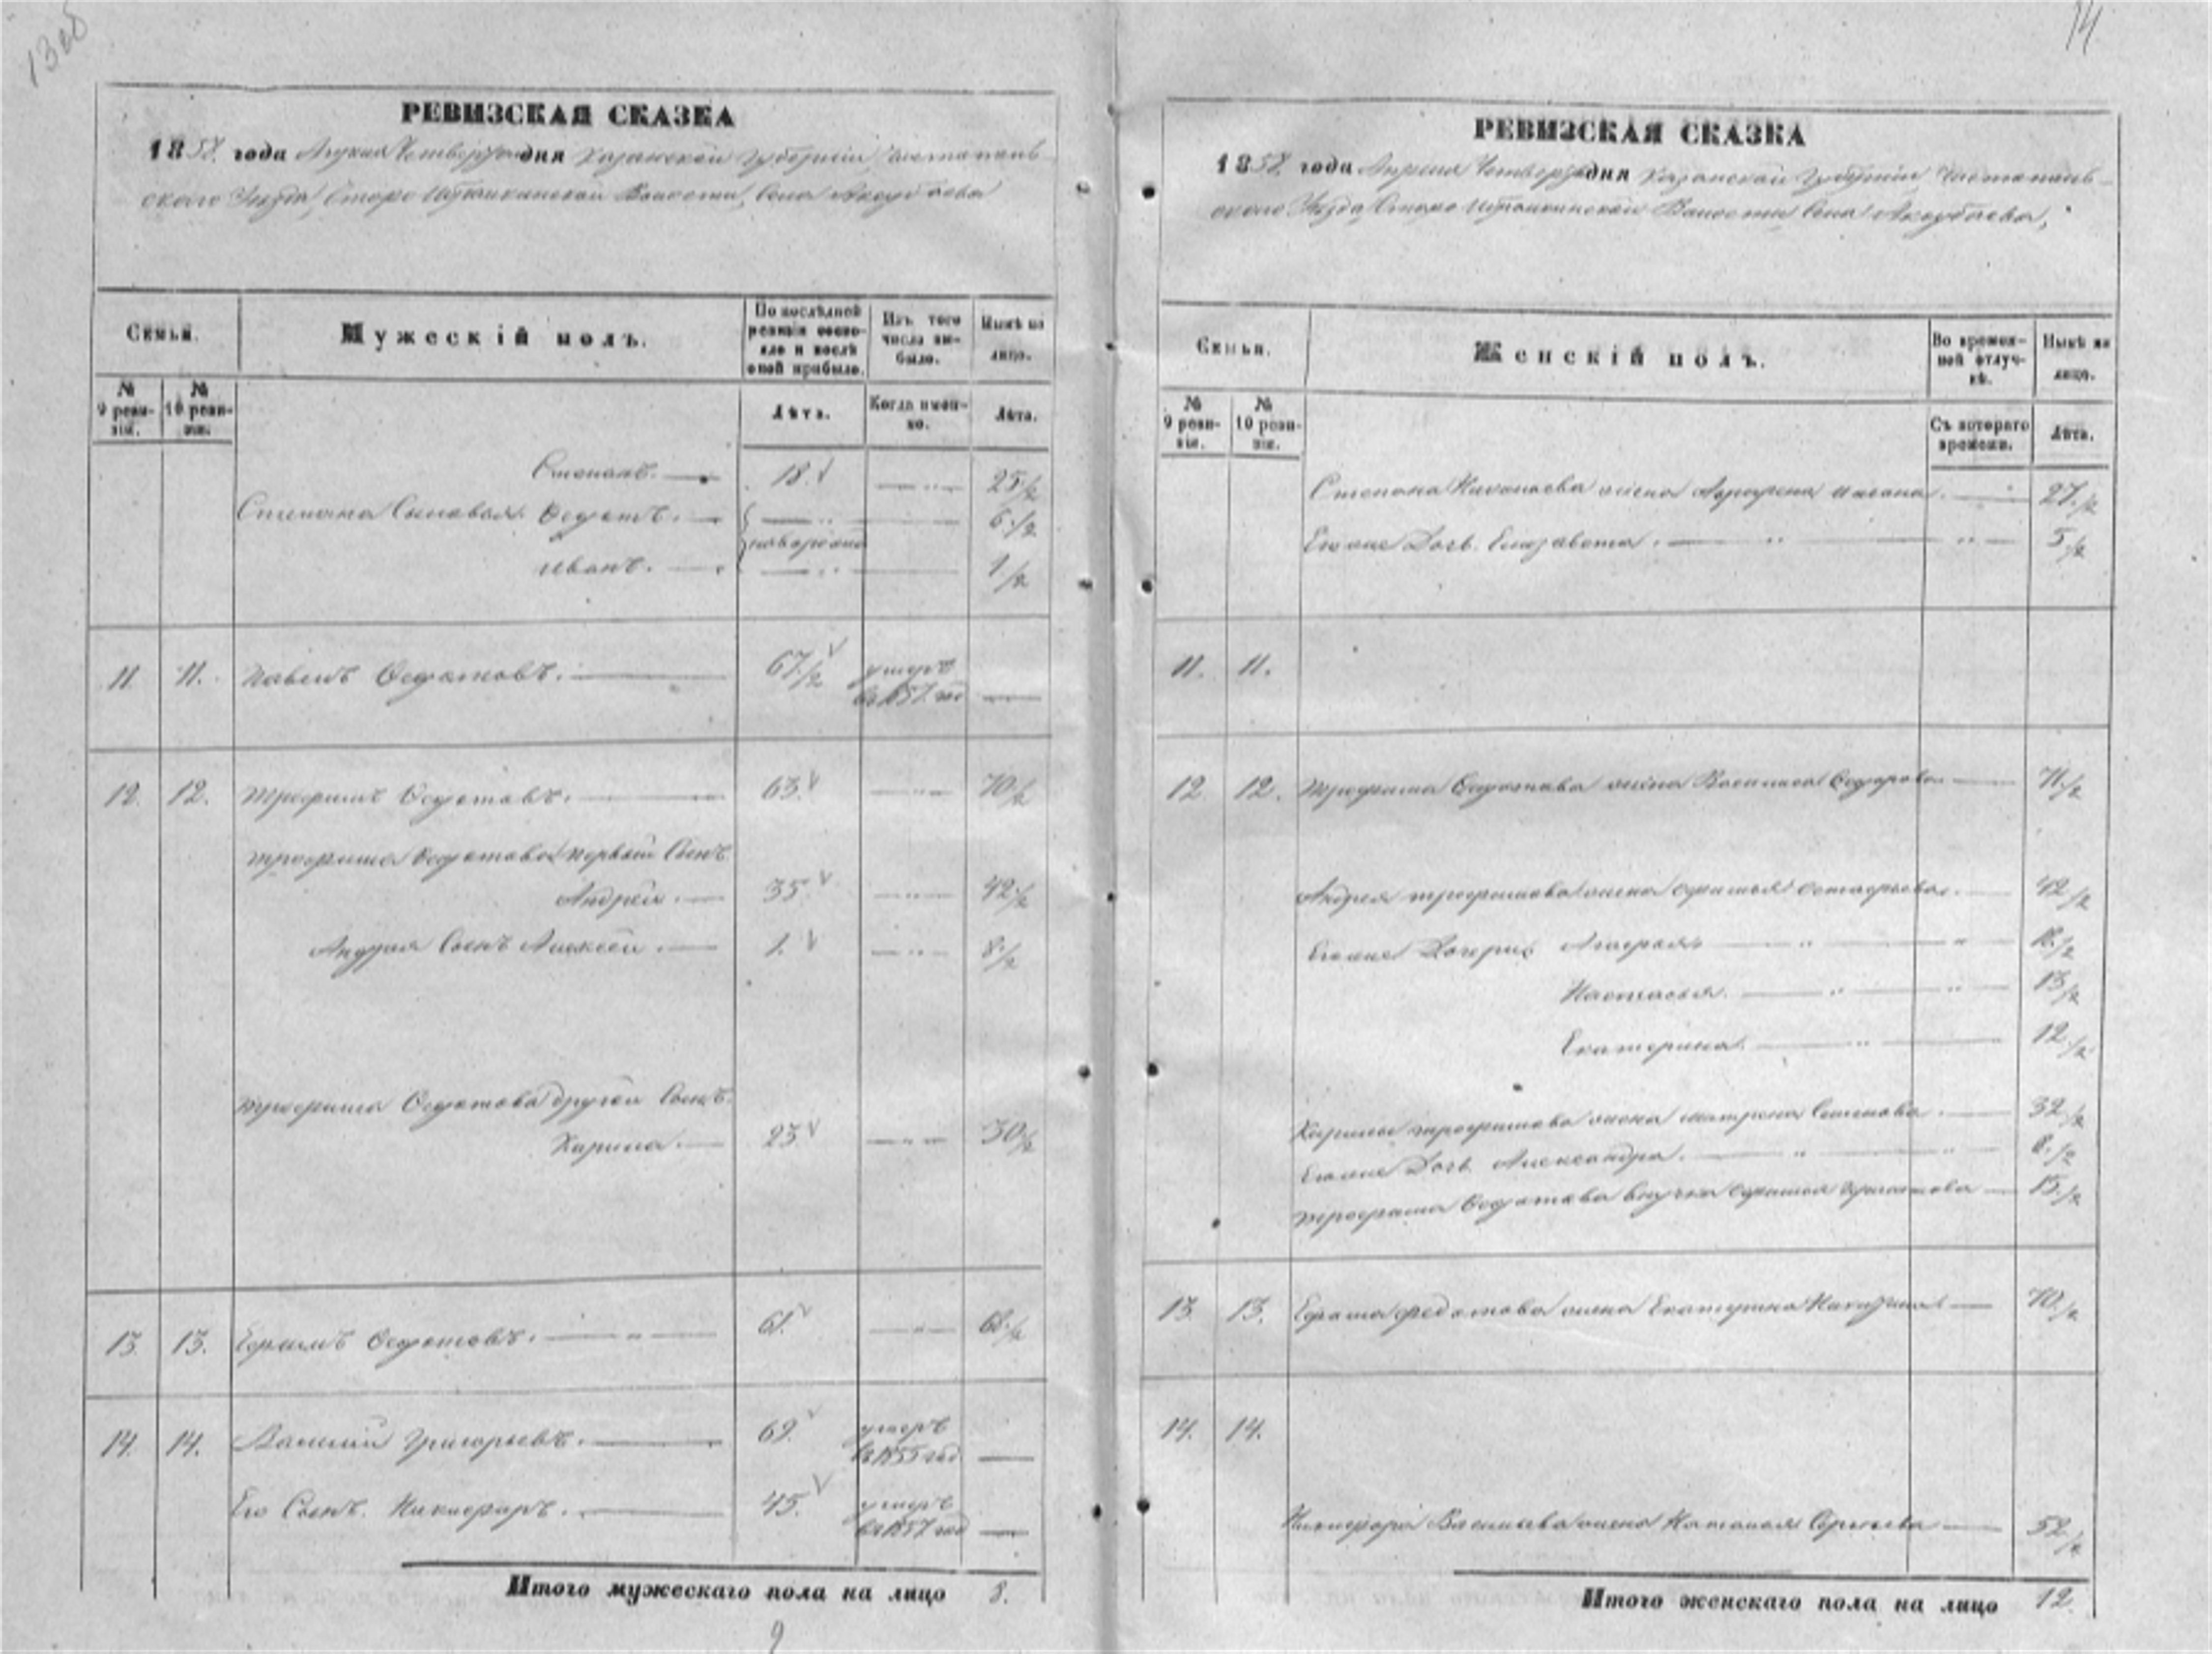 13 об
РЕВИЗСКАЯ СКАЗКА
1858 года Апреля Четвертого дня Казанской Губернии, Чистополь-
скаго Уезда, Старо Ибрайкинской Волости, Села Аксубаева
Семьи.
Мужескій полъ.
По послѣдней ревизіи состояло и послѣ оной прибыло.
Изъ того числа выбыло.
Нынѣ на лицо.
№ 9 ревизіи.
№ 10 ревизіи.
Лѣта.
Когда именно.
Лѣта.
Степанъ. 18. 25./2
Степана Сыновья Федотъ. новорожд 6./2
Иванъ. 1/2
11 11. Павелъ Федотовъ. 67./2 умеръ
в 1857 год
12. 12. Трофимъ Федотовъ. 63. 70/2
Трофима Федотова первый Сынъ
Андрей. 35. 42./2
Андрея Сынъ Алексей. 1. 8./2
Трофима Федотова другой Сынъ.
Карила. 23 30/2
13 13. Ефимъ Федотовъ. 61. 68./2
14. 14. Василий Григорьевъ. 69. умеръ
в 1855 год
Его Сынъ. Никифоръ. 45. умеръ
в 1857 год
Итого мужескаго пола на лицо 8.
9
14
РЕВИЗСКАЯ СКАЗКА
1858 года Апреля Четвертого дня Казанской Губернии, Чистополь-
скаго Уезда, Старо Ибрайкинской Волости, Села Аксубаева,
Семьи.
Женскій полъ.
Во временной отлучкѣ.
Нынѣ на лицо.
№ 9 ревизіи.
№ 10 ревизіи.
Съ котораго времени.
Лѣта.
Степана Николаева жена 27./2
Его же Дочь. Елизавета. 5/2
11. 11.
12. 12. Трофима Федотова жена Василиса Федорова 71./2
Андрея Трофимова жена Офимья Остафьева. 42/2
Его же Дочери Агафья 18./2
Настасья. 13/2
Екатерина. 12./2
Карилы Трофимова жена Матрена Семенова. 32/2
Его же Дочь Александра. 8./2
Трофима Федотова внучка Офимья 15./2
13 13. Ефима Федотова жена Екатерина 70./2
14. 14.
Никифора Васильева жена Наталья Сергеева 52/2
Итого женскаго пола на лицо 12.